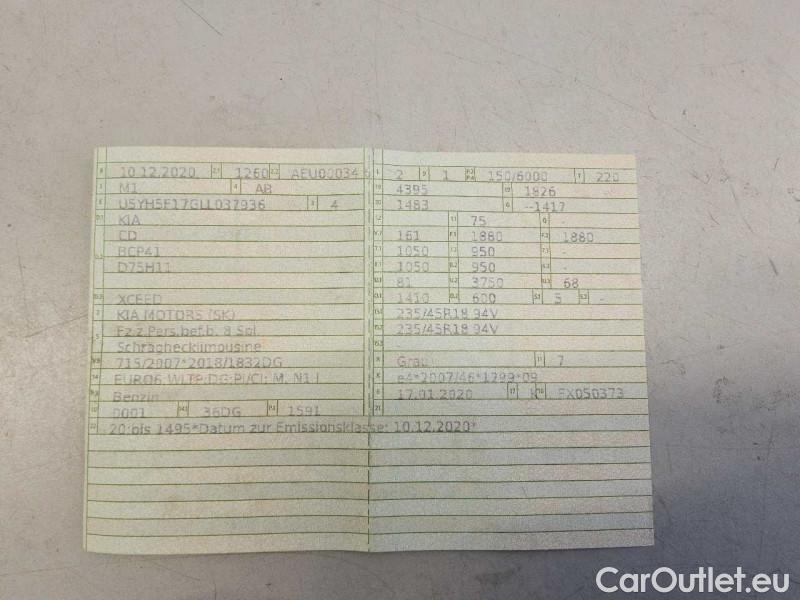 B 10.12.2020 2.1 1260 2.2 AEU00034
J M1 4 AB
E U5YH5F17GLL037936 3 4
D.1 KIA
CD
D.2 BCP41
D75H11
D.3 XCEED
2 KIA MOTORS (SK)
5 Fz.z.Pers.bef.b. 8 Spl.
Schräghecklimousine
V.9 715/2007*2018/1832DG
14 EURO6 WLTP;DG;PI/CI; M, N1 I
P.3 Benzin
10 0001 14.1 36DG P.1 1591
22 20:bis 1495*Datum zur Emissionsklasse: 10.12.2020*
L 2 9 1 P.2 P.4 150/6000 T 220
18 4395 19 1826
20 1483 G --1417
12 - 13 75 Q -
V.7 161 F.1 1880 F.2 1880
7.1 1050 7.2 950 7.3 -
8.1 1050 8.2 950 8.3 -
U.1 81 U.2 3750 U.3 68
O.1 1410 O.2 600 S.1 5 S.2 -
15.1 235/45R18 94V
15.2 235/45R18 94V
15.3 -
R Grau 11 7
K e4*2007/46*1299*09
6 17.01.2020 17 K 16 FX050373
21
CarOutlet.eu